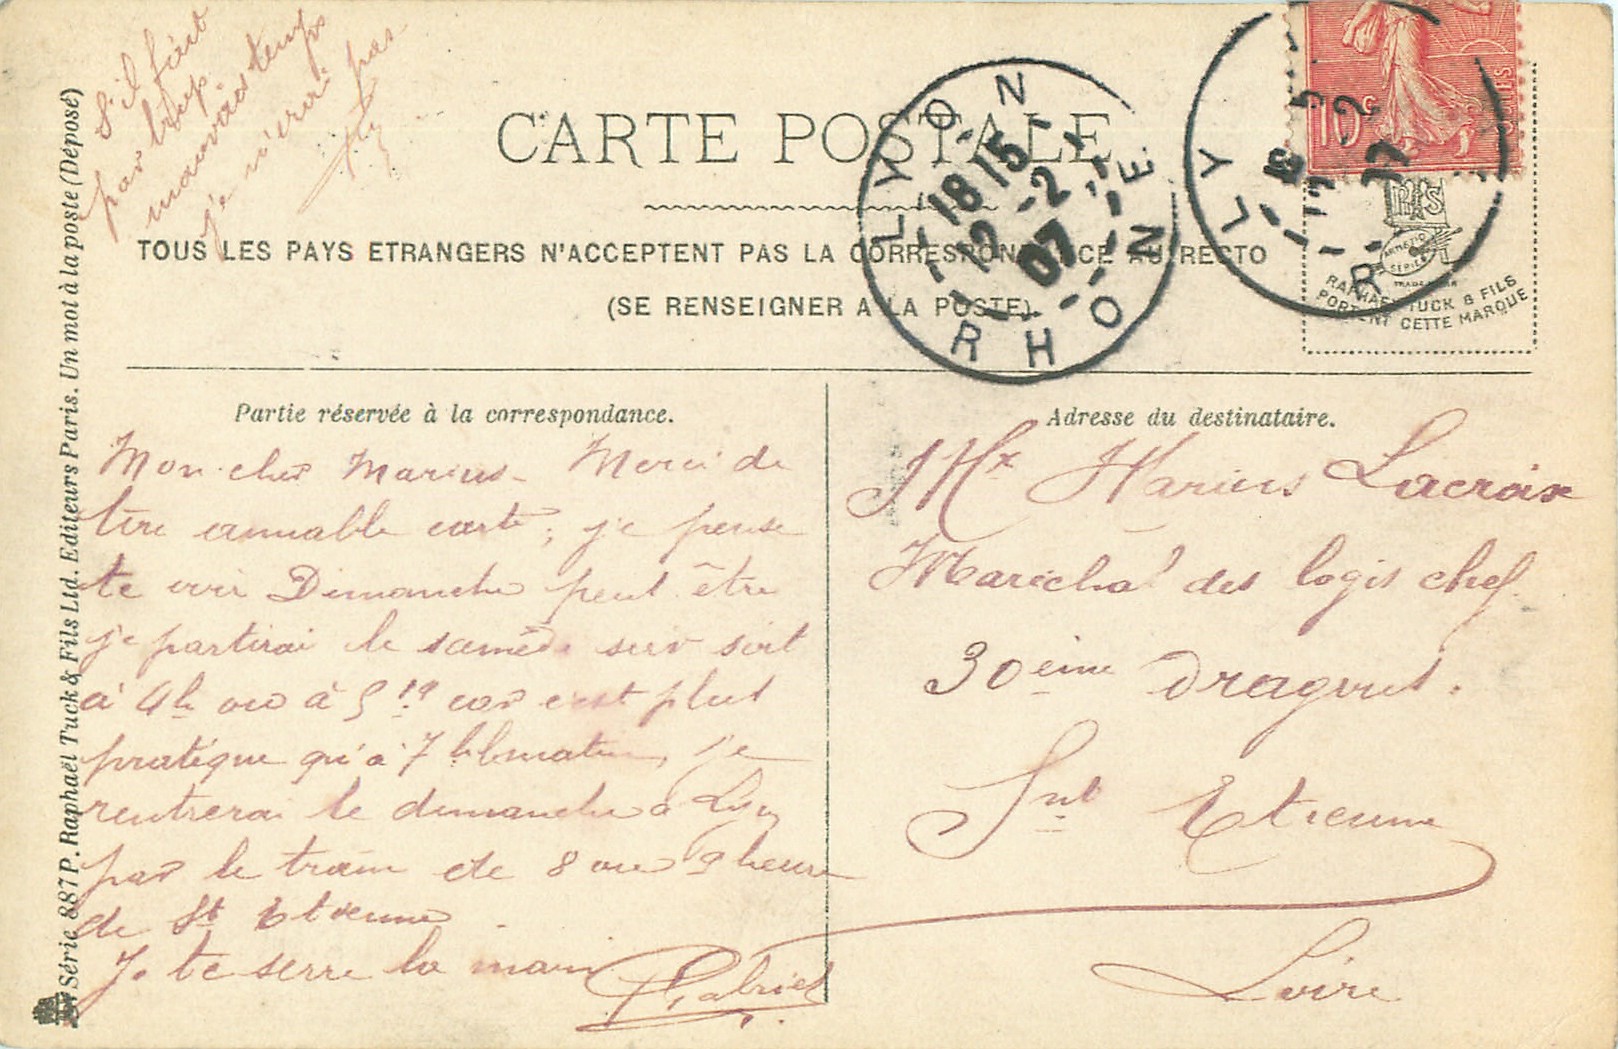 S'il fait
par trop
mauvais temps
je n'irai pas
CARTE POSTALE
TOUS LES PAYS ETRANGERS N'ACCEPTENT PAS LA CORRESPONDANCE AU RECTO
(SE RENSEIGNER A LA POSTE).
LYON
18 15
12 -2
07
RHONE
LY
R
10c
RAPHAEL TUCK & FILS
PORTENT CETTE MARQUE
Série 887 P. Raphaël Tuck & Fils Ltd. Editeurs Paris. Un mot à la poste (Déposé)
Partie réservée à la correspondance.
Mon cher Marius. Merci de
ton aimable carte; je pense
te voir Dimanche peut être
je partirai le samedi soir soit
à 4h ou à 5 19 car c'est plus
pratique qu'à 7 h matin, je
rentrerai le dimanche à Lyon
par le train de 8 ou 9 heure
de St Etienne
Je te serre la main
Gabriel
Adresse du destinataire.
Mr Marius Lacroix
Maréchal des logis chef
30ème Dragons.
Snt Etienne
Loire